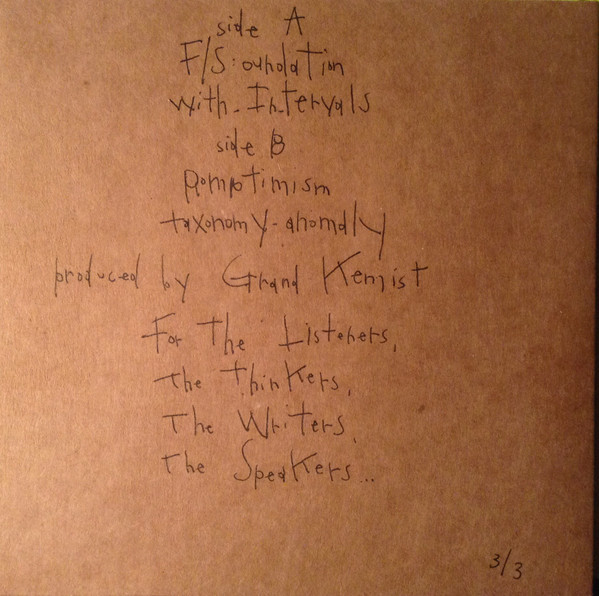 side A
F/S:oundation
with-Intervals
side B
pomptimism
taxonomy-anomaly
produced by Grand Kemist
For The Listeners,
The Thinkers,
The Writers,
The Speakers...
3/3